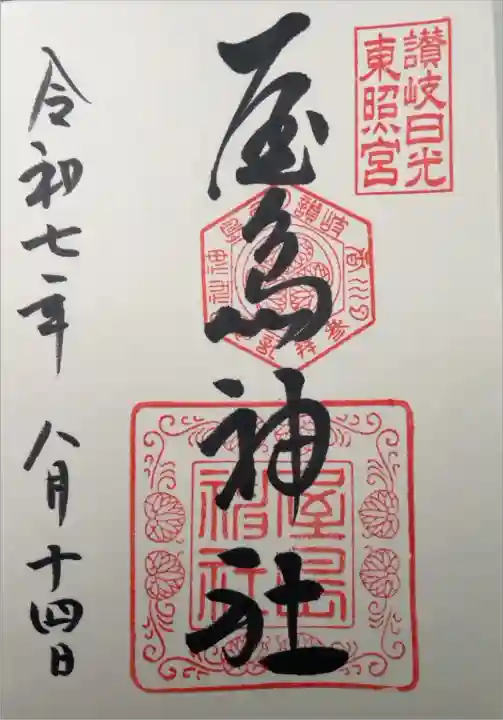 讃岐日光
東照宮
屋島神社
屋島
神社
令和七年 八月十四日